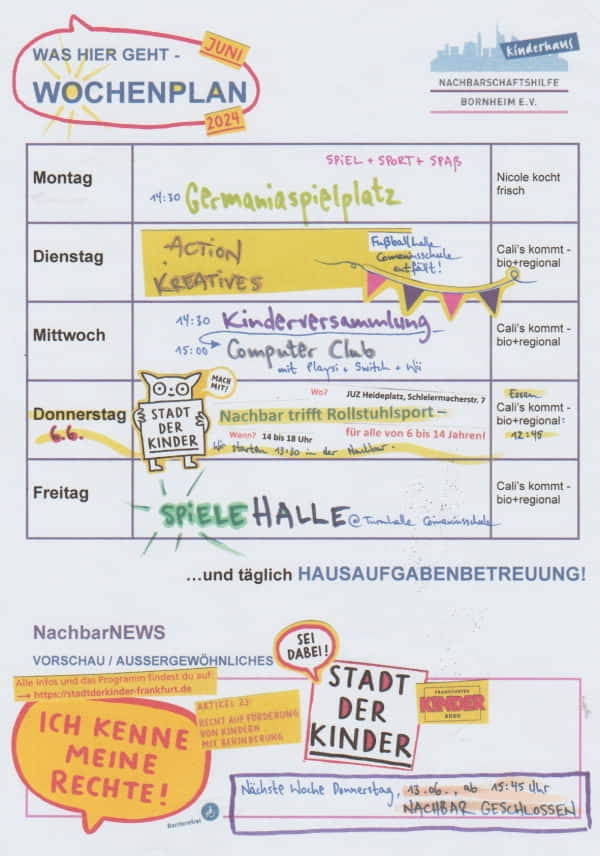 WAS HIER GEHT -
JUNI
WOCHENPLAN
2024
Kinderhaus
NACHBARSCHAFTSHILFE
BORNHEIM E.V.
Montag
SPiEL + SPORT + SPAß
14:30 Germaniaspielplatz
Nicole kocht
frisch
Dienstag
ACTION
KREATIVES
Fußballhalle
Comeniusschule
entfällt!
Cali's kommt -
bio+regional
Mittwoch
14:30 Kinderversammlung
15:00 Computer Club
mit Playsi + Switch + Wii
Cali's kommt -
bio+regional
Donnerstag
6.6.
MACH
MIT!
STADT
DER
KINDER
Wo? JUZ Heideplatz, Schleiermacherstr. 7
Nachbar trifft Rollstuhlsport –
Wann? 14 bis 18 Uhr
für alle von 6 bis 14 Jahren!
Wir starten 13:30 in der Nachbar.
Essen
Cali's kommt -
bio+regional:
12:45
Freitag
SPiELEHALLE @ Turnhalle Comeniusschule
Cali's kommt -
bio+regional
...und täglich HAUSAUFGABENBETREUUNG!
NachbarNEWS
VORSCHAU / AUSSERGEWÖHNLICHES
SEI
DABEI!
Alle Infos und das Programm findest du auf:
→ https://stadtderkinder-frankfurt.de
ICH KENNE
MEINE
RECHTE!
ARTIKEL 23:
RECHT AUF FÖRDERUNG
VON KINDERN
MIT BEHINDERUNG
STADT
DER
KINDER
FRANKFURTER
KINDER
BÜRO
Barrierefrei
Nächste Woche Donnerstag, 13.06., ab 15:45 Uhr
NACHBAR GESCHLOSSEN